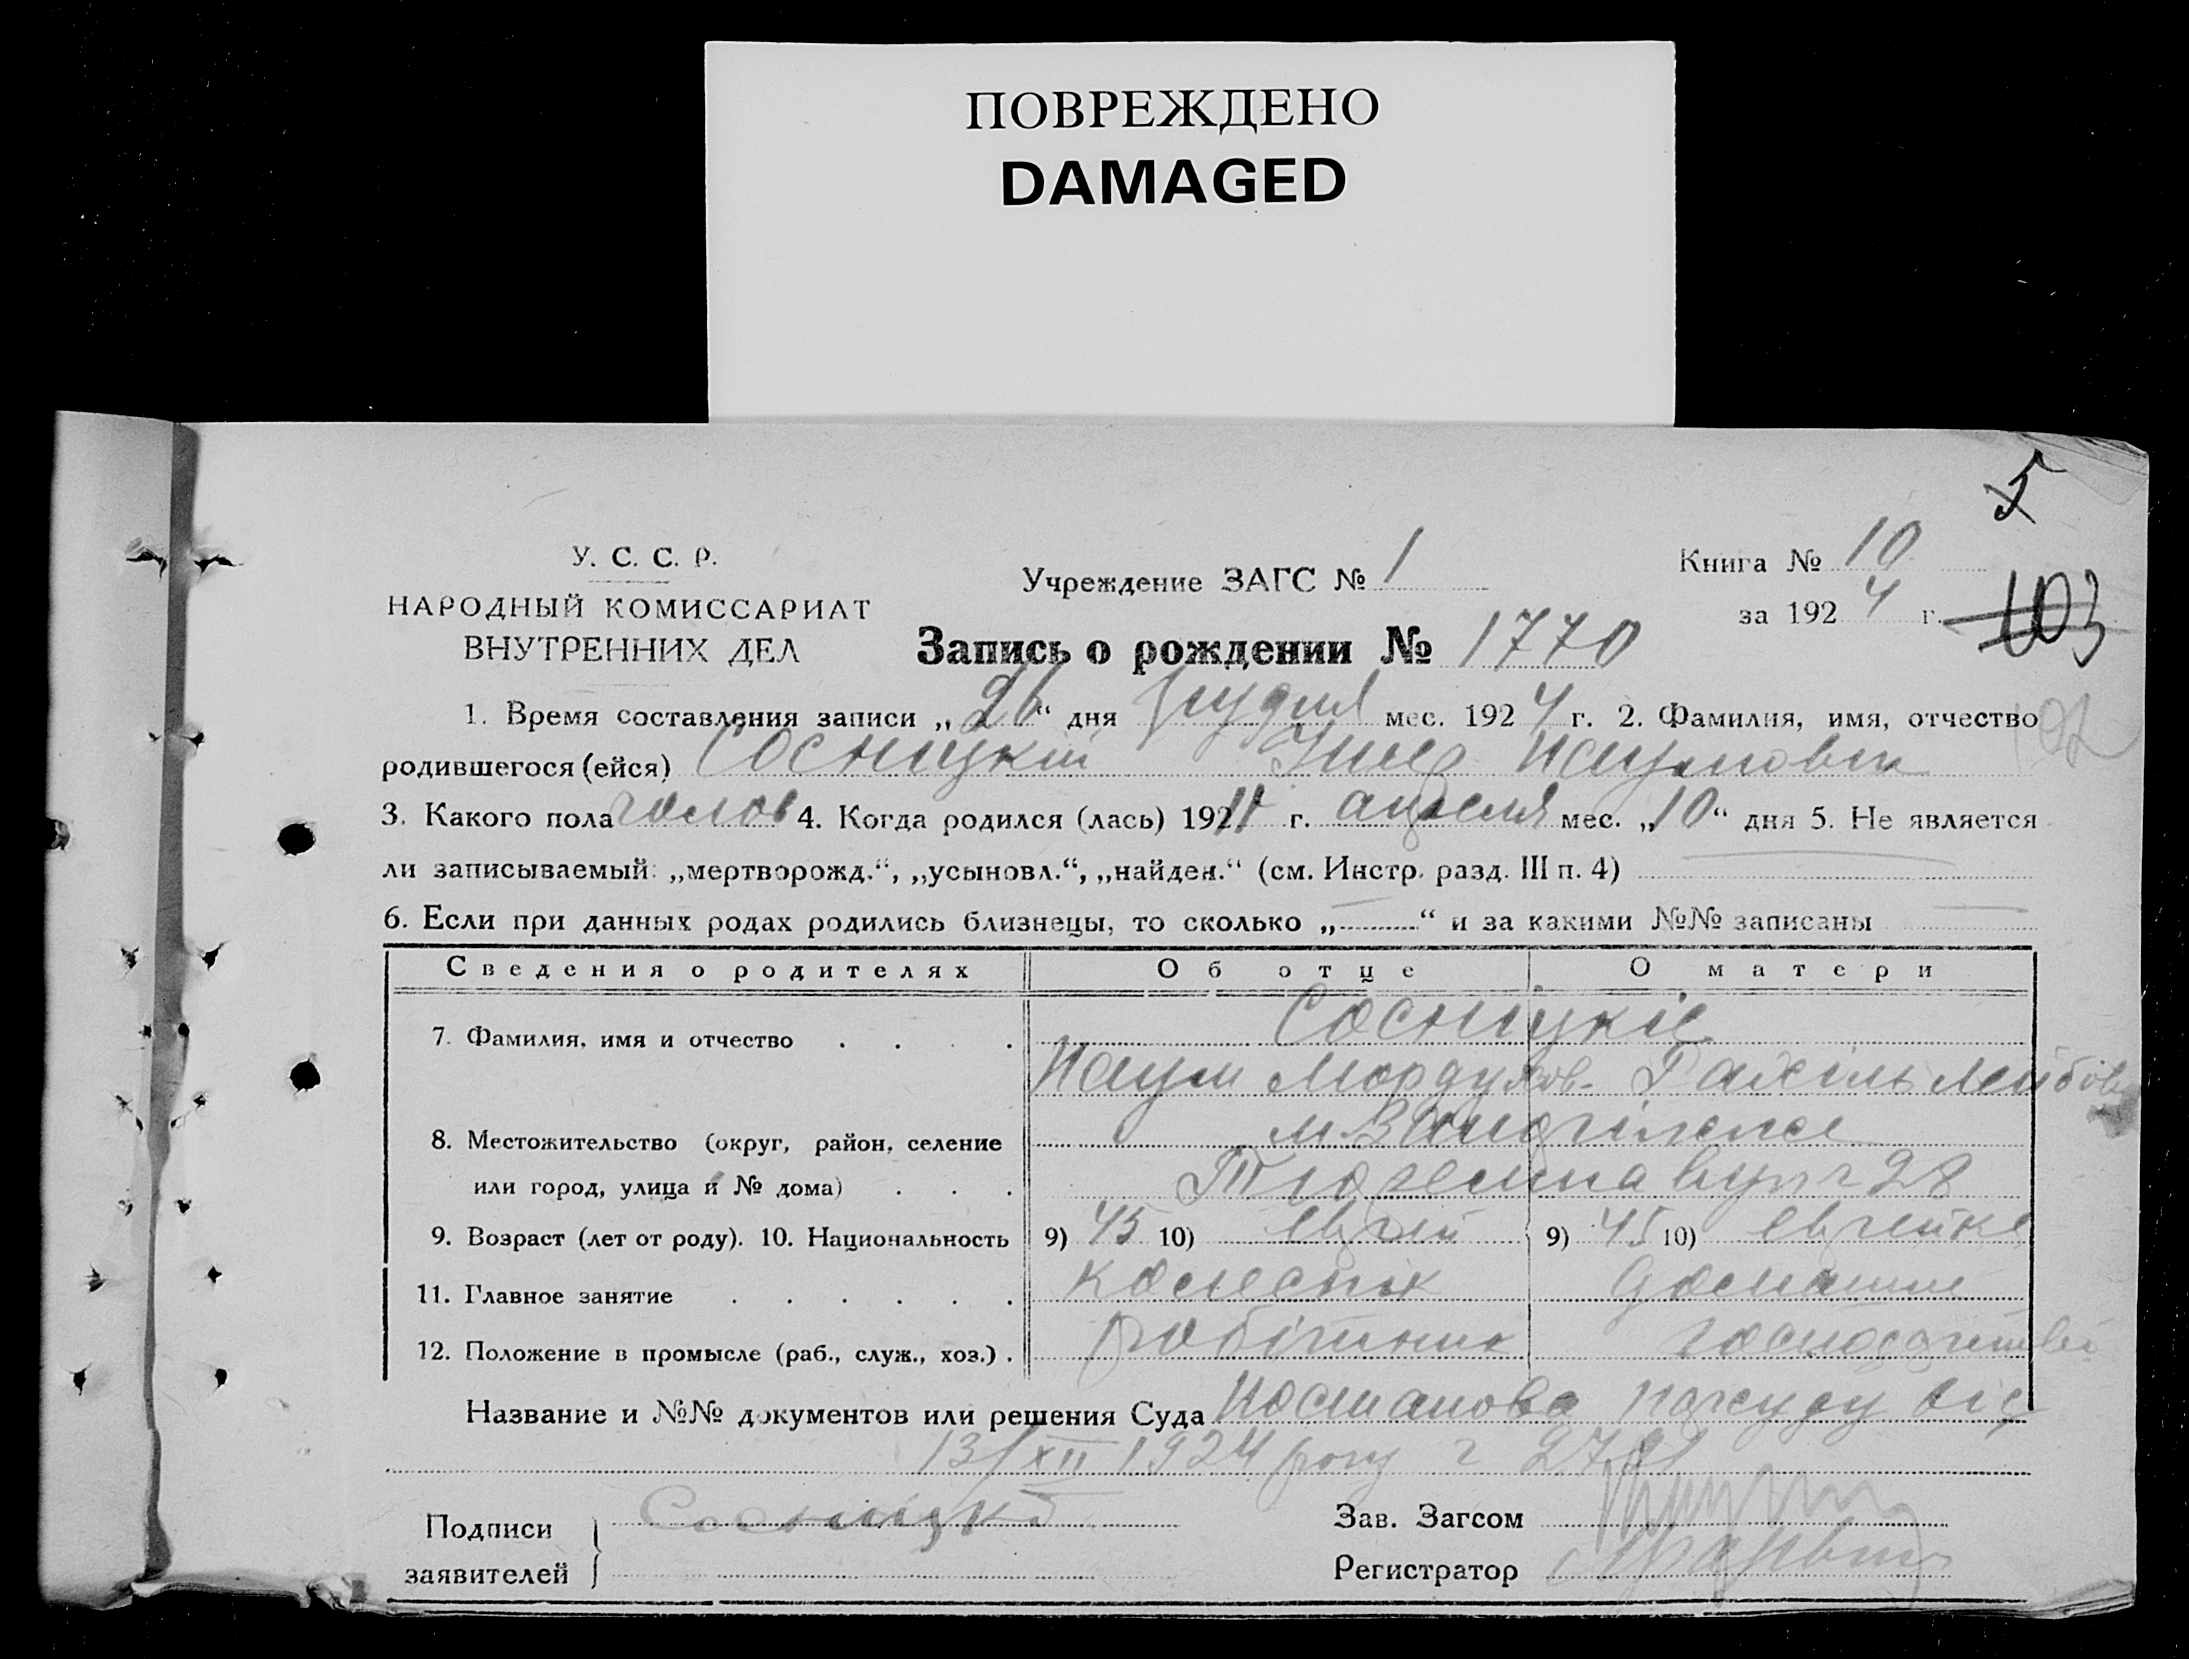 ПОВРЕЖДЕНО
DAMAGED
5
У. С. С. Р.
НАРОДНЫЙ КОМИССАРИАТ
ВНУТРЕННИХ ДЕЛ
Учреждение ЗАГС № 1
Книга № 10
за 1924 г.
103
Запись о рождении № 1770
1. Время составления записи „26“ дня грудня мес. 1924 г. 2. Фамилия, имя, отчество
102
родившегося (ейся) Сосницкий Наумович
3. Какого пола чолов 4. Когда родился (лась) 1911 г. апреля мес. „10“ дня 5. Не является
ли записываемый: „мертворожд.“, „усыновл.“, „найден.“ (см. Инстр. разд. III п. 4)
6. Если при данных родах родились близнецы, то сколько „ “ и за какими №№ записаны
Сведения о родителях Об отце О матери
7. Фамилия, имя и отчество . . . . Сосницкіе
Наум Мордухов- Рахіль Лейбовн
8. Местожительство (округ, район, селение м.
или город, улица и № дома) . . . вул ч 28
9. Возраст (лет от роду). 10. Национальность 9) 45 10) еврей 9) 45 10) еврейка
11. Главное занятие . . . . . . домашнє
12. Положение в промысле (раб., служ., хоз.) . робітник господарство
Название и №№ документов или решения Суда Постанова нарсуду від
13/XII 1924 року ч 2791
Подписи заявителей Сосницкі
Зав. Загсом
Регистратор